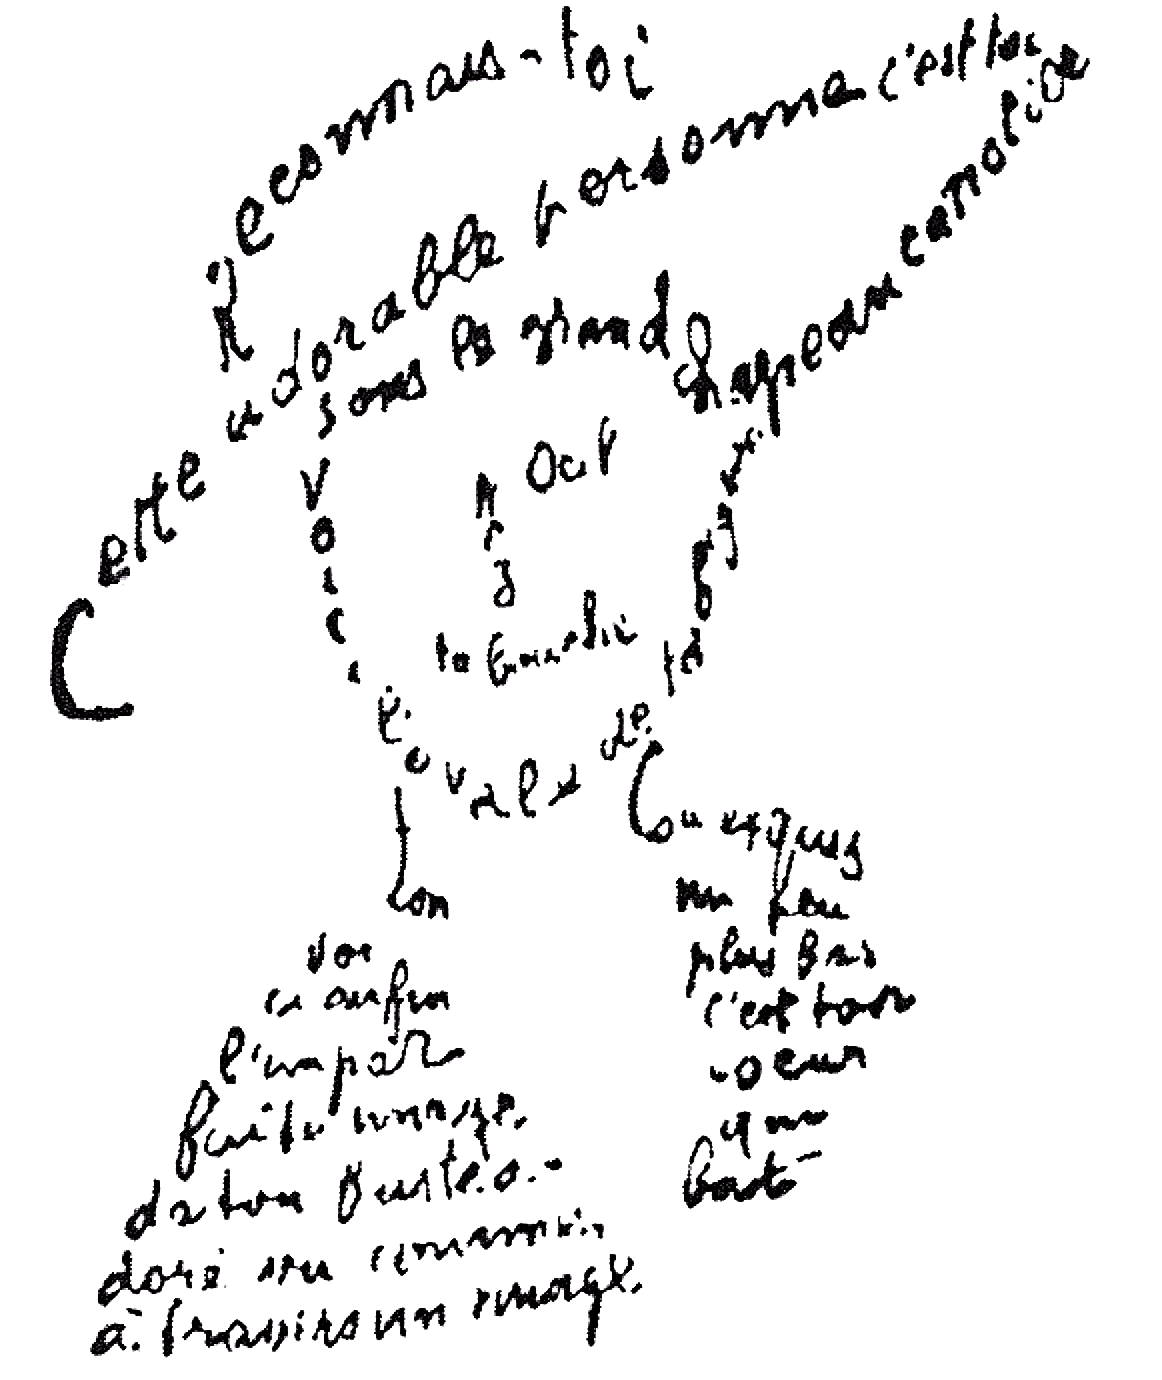 Reconnais-toi
Cette adorable personne c'est toi
sous le grand chapeau canotier
Oeil
Nez
ta bouche
Voici l'ovale de ta figure
Ton
cou exquis
voi
ci enfin
l'impar
faite image
de ton buste a
doré vu comme
à travers un nuage
un peu
plus bas
c'est ton
coeur
qui
bat